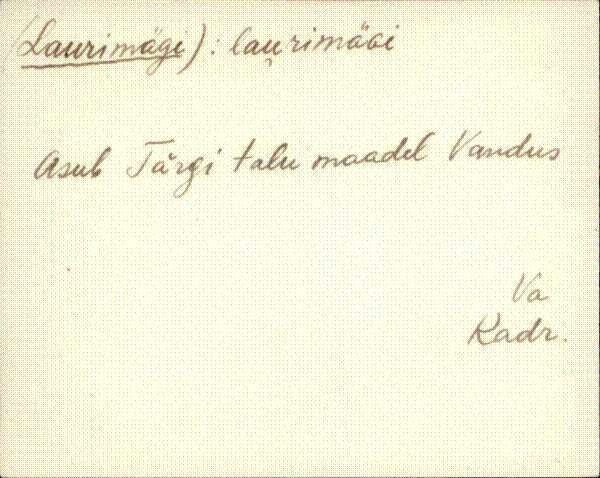 (Laurimägi): lau̮rimäGi
Asub Tärgi talu maadel Vandus
Va
Kadr.